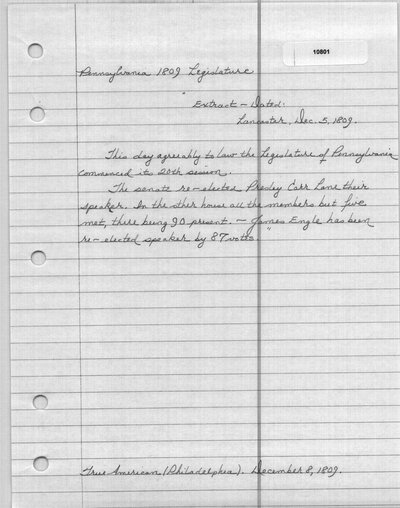 10801
Pennsylvania 1809 Legislature
"Extract - Dated:
Lancaster, Dec. 5, 1809.
This day agreeably to law the Legislature of Pennsylvania
commenced its 20th session.
The senate re-elected Presley Carr Lane their
speaker. In the other house all the members but five
met, there being 90 present. - James Engle has been
re-elected speaker by 87 votes."
True American (Philadelphia). December 8, 1809.